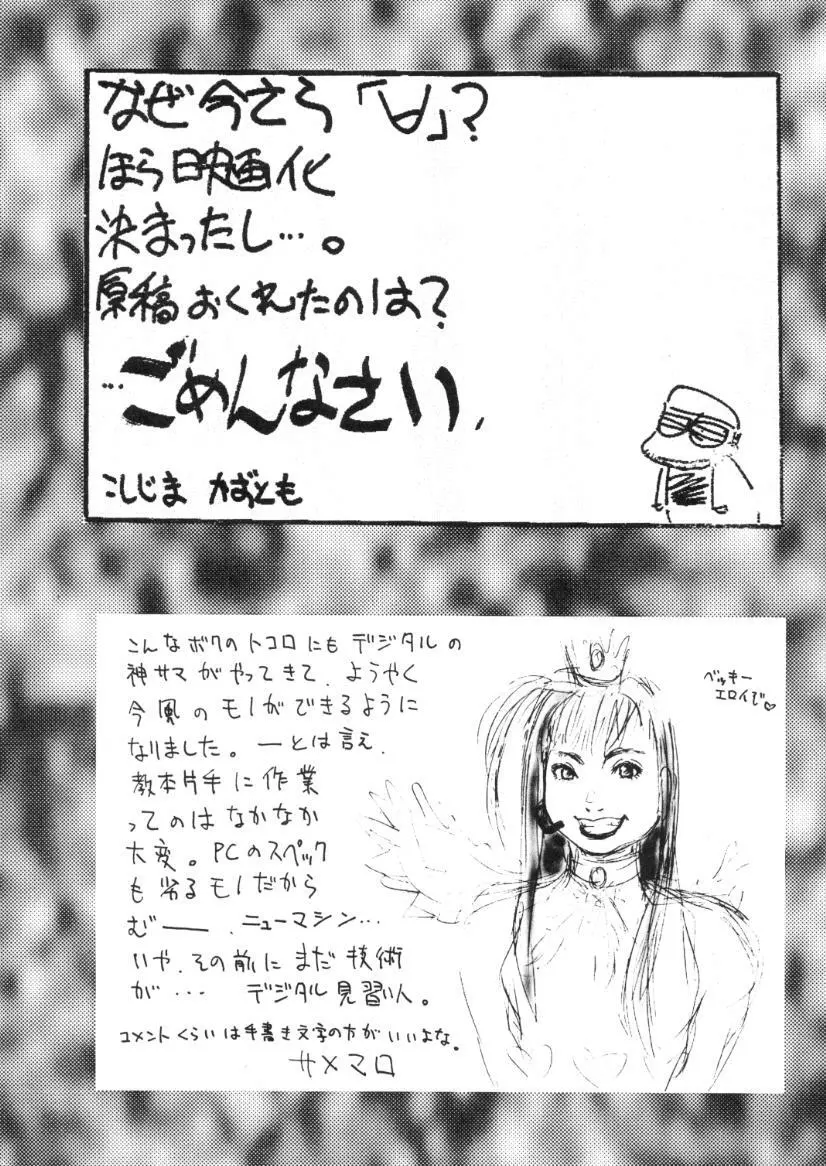 なぜ今さら「∀」?
ほら映画化
決まったし…。
原稿おくれたのは?
…ごめんなさい,
こしじま かずとも
こんなボクのトコロにもデジタルの
神サマがやってきて、ようやく
今風のモノができるように
なりました。―とは言え、
教本片手に作業
ってのはなかなか
大変。PCのスペック
も劣るモノだから
む――、ニューマシン…
いや、その前にまだ技術
が… デジタル見習い人。
コメントくらいは手書き文字の方がいいよな。
サメマロ
ベッキー
エロイで♡